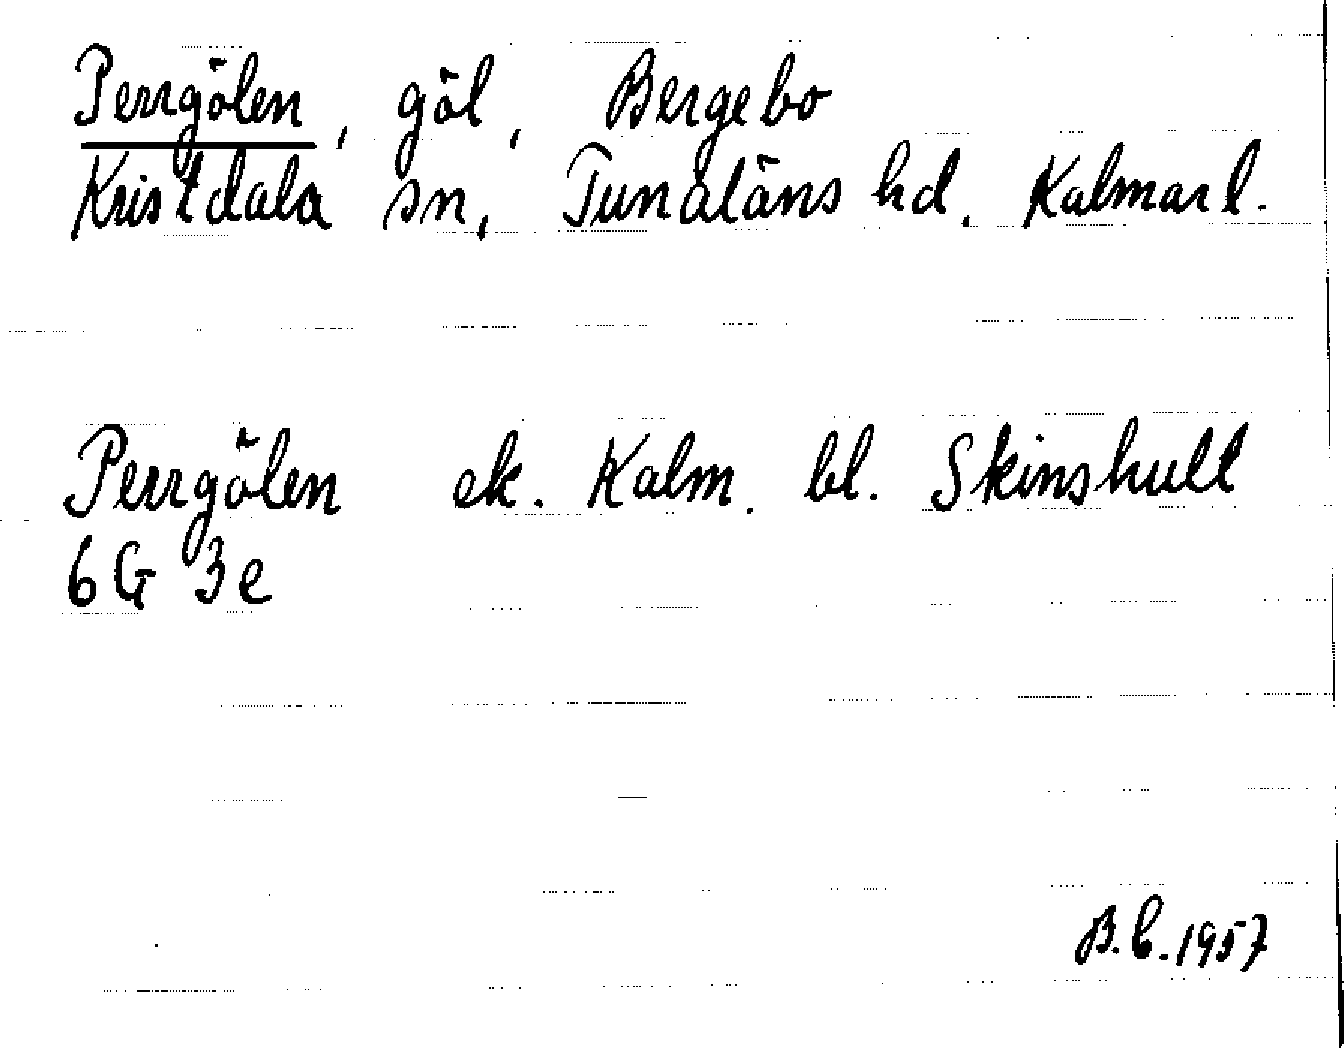 Perrgölen, göl, Bergebo
Kristdala sn, Tunaläns hd. Kalmar l.
Perrgölen ek. Kalm. bl. Skinshult
6G 3e
B.C. 1957